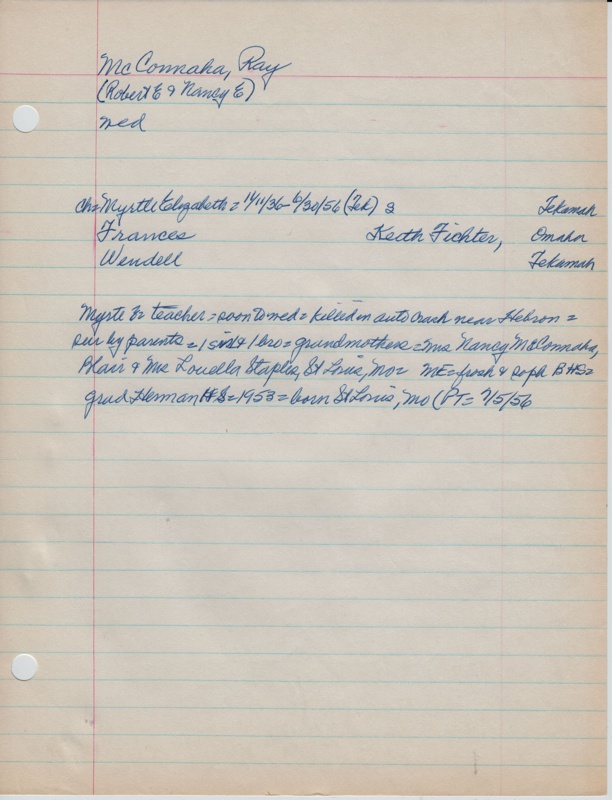 McConnaha, Ray
(Robert E & Nancy E)
wed
ch = Myrtle Elizabeth = 1/11/36 - 6/30/56 (Tek) s Tekamah
Frances Keith Fichter, Omaha
Wendell Tekamah
Myrtle E = teacher = soon to wed = killed in auto crash near Hebron =
sur by parents = 1 sis & 1 bro = grandmothers = Mrs Nancy McConnaha,
Blair & Mrs Louella Staples, St Louis, Mo = ME = frosh & soph BHS =
grad Herman HS = 1953 = born St Louis, Mo (PT = 7/5/56